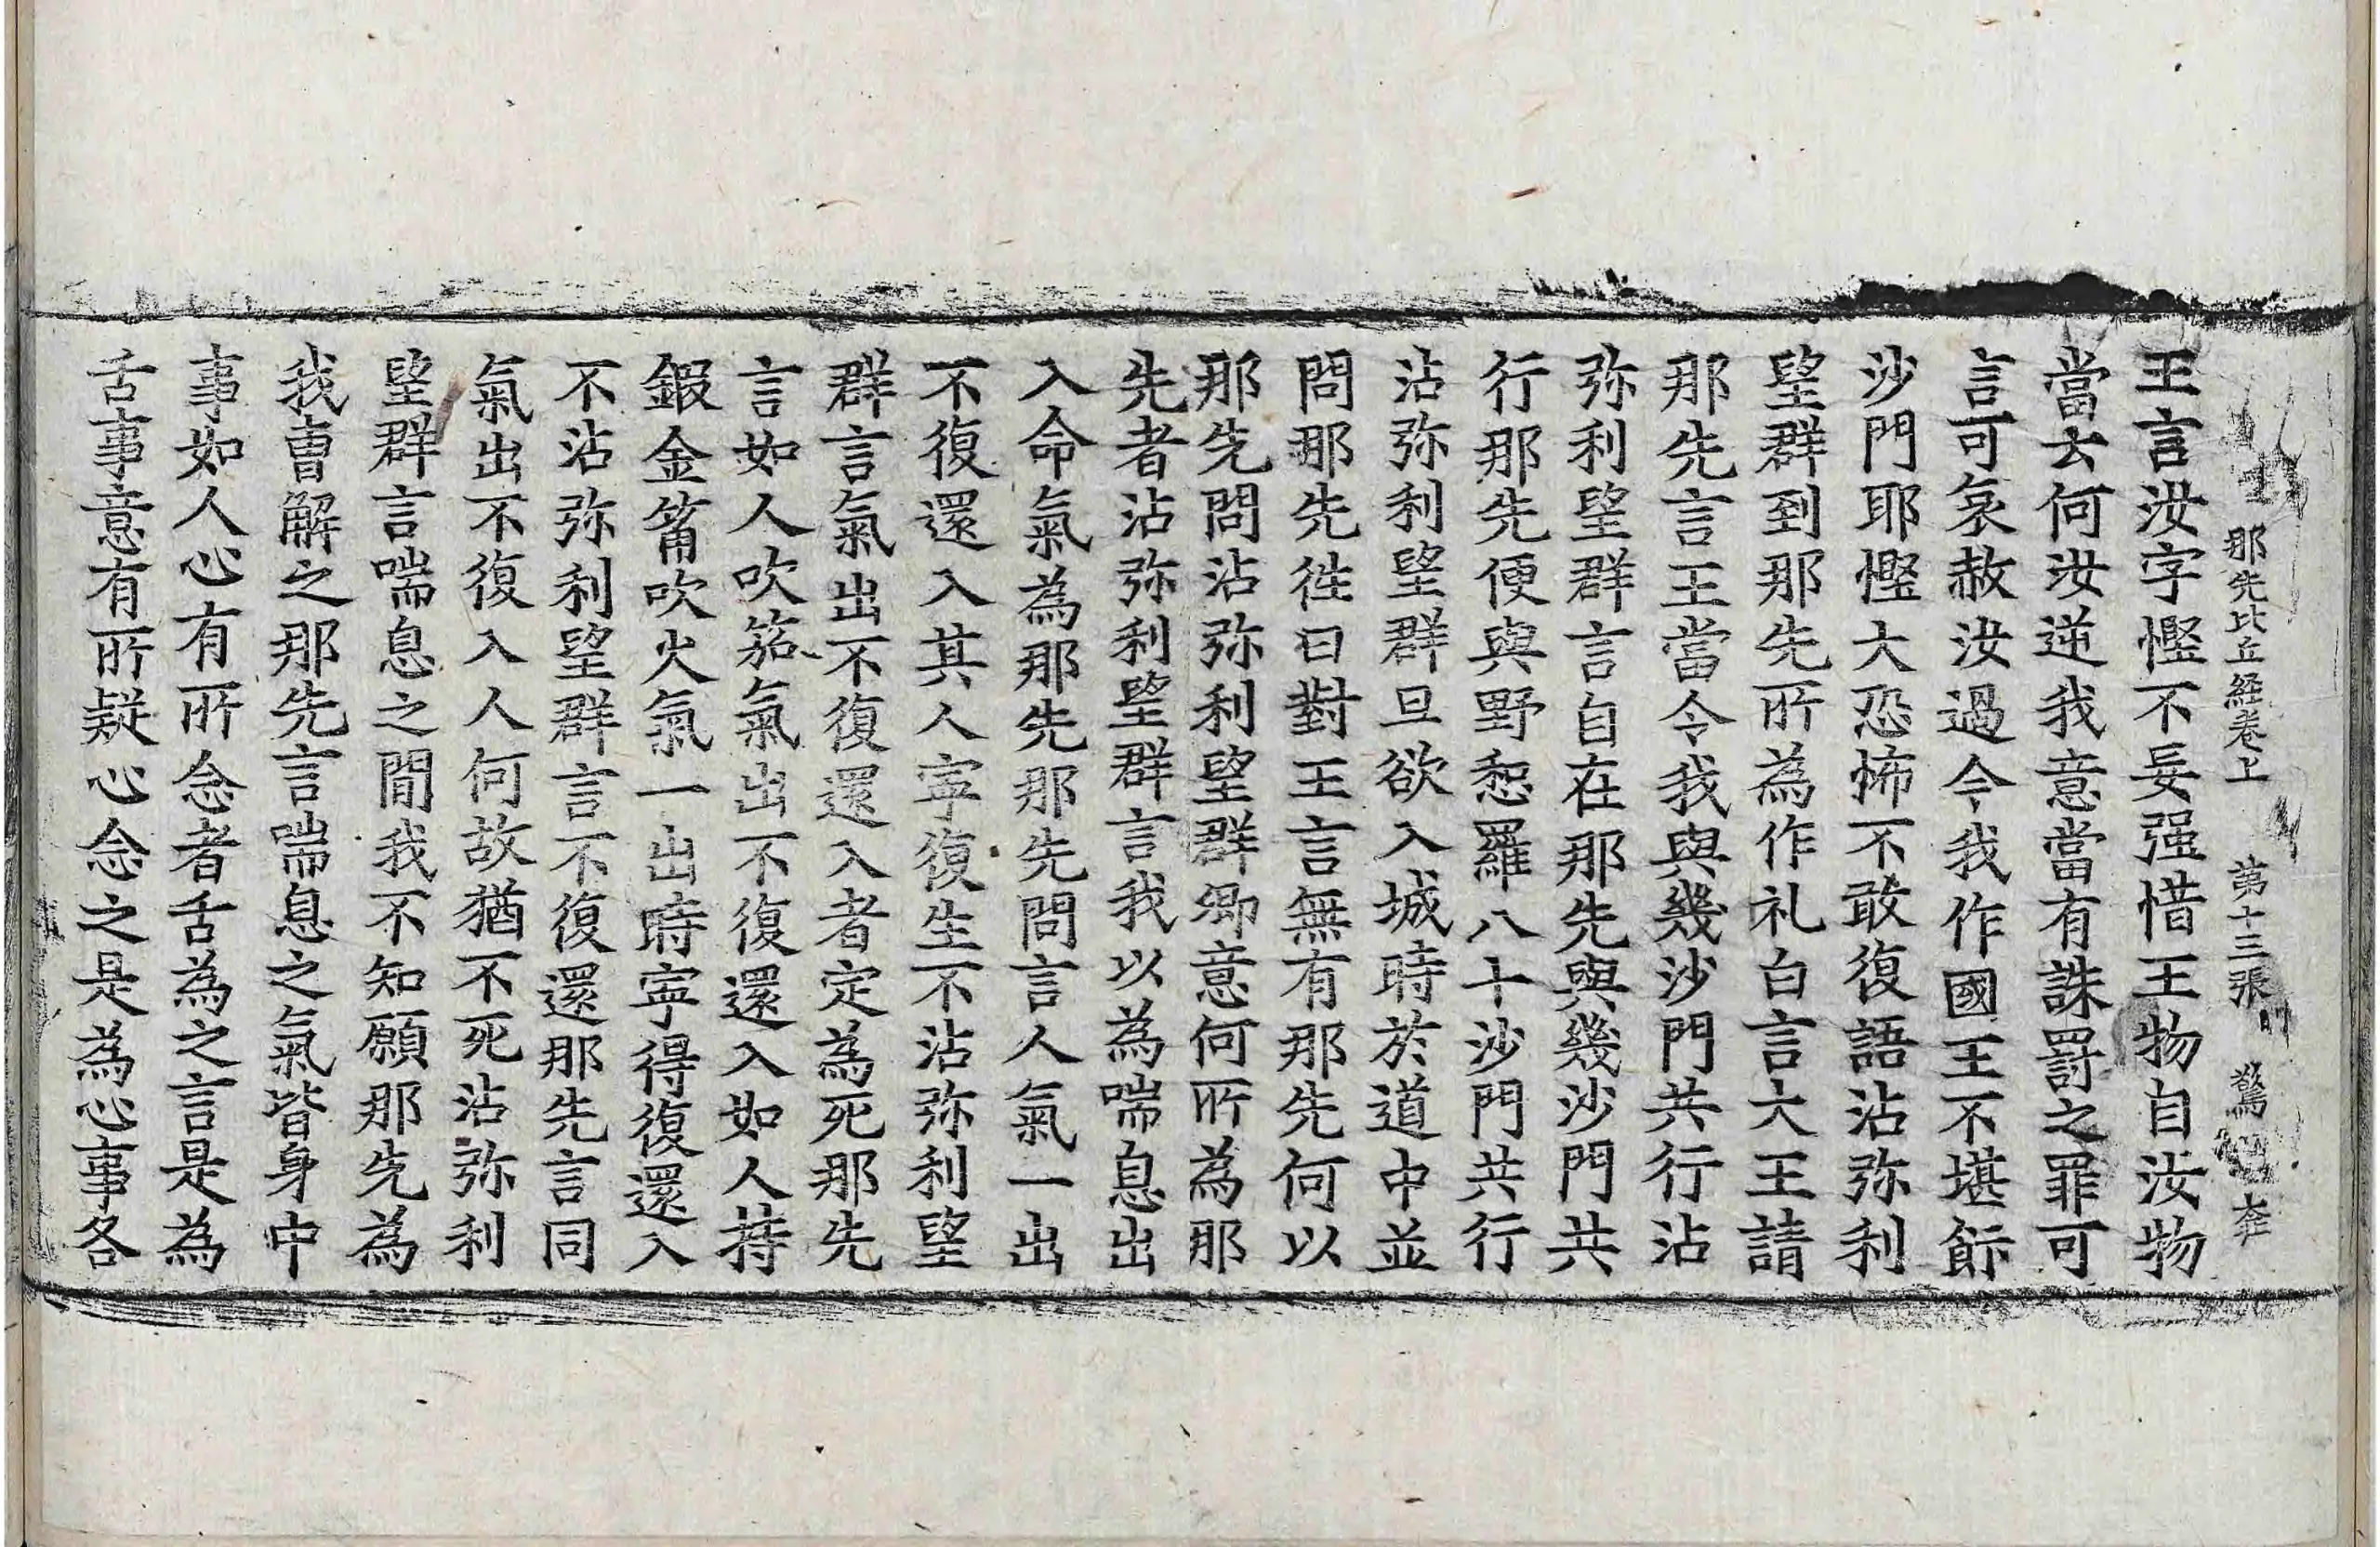 那先比丘経卷上 第十三張 驚
王言汝字慳不妄强惜王物自汝物
當去何汝逆我意當有誅罰之罪可
言可哀赦汝過今我作國王不堪飾
沙門耶慳大恐怖不敢復語沾弥利
望群到那先所為作礼白言大王請
那先言王當令我與幾沙門共行沾
弥利望群言自在那先與幾沙門共
行那先便與野惒羅八十沙門共行
沾弥利望群旦欲入城時於道中並
問那先徃日對王言無有那先何以
那先問沾弥利望群卿意何所為那
先者沾弥利望群言我以為喘息出
入命氣為那先那先問言人氣一出
不復還入其人寧復生不沾弥利望
群言氣出不復還入者定為死那先
言如人吹笳氣出不復還入如人持
鍜金筩吹火氣一出時寧得復還入
不沾弥利望群言不復還那先言同
氣出不復入人何故猶不死沾弥利
望群言喘息之間我不知願那先為
我曹解之那先言喘息之氣皆身中
事如人心有所念者舌為之言是為
舌事意有所疑心念之是為心事各